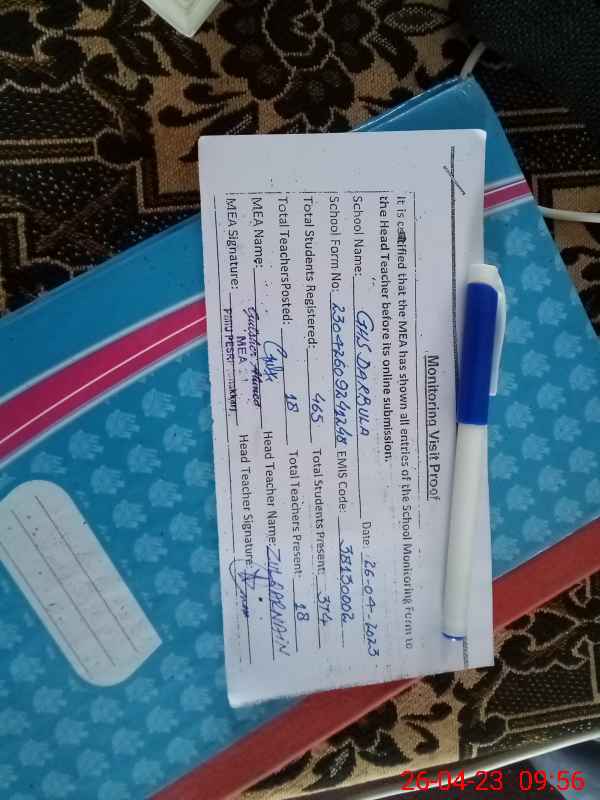 Monitoring Visit Proof
It is certified that the MEA has shown all entries of the School Monitoring Form to
the Head Teacher before its online submission.
School Name: GHS DARBULA Date: 26-04-2023
School Form No: EMIS Code: 38130002
Total Students Registered: 465 Total Students Present: 374
Total TeachersPosted: 18 Total Teachers Present: 18
MEA Name: Head Teacher Name: ZULQARNAIN
MEA Signature: Head Teacher Signature:
MEA
26-04-23 09:56